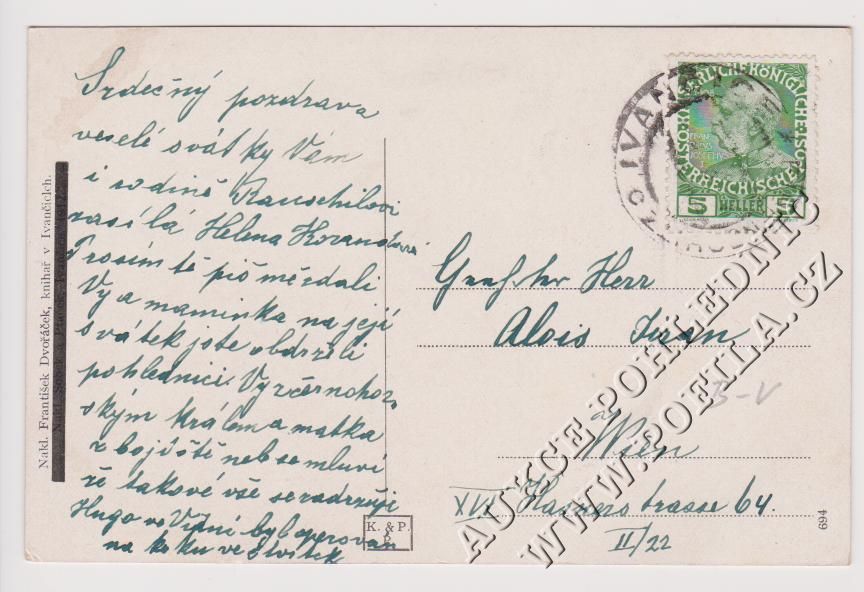 Srdečný pozdrav a
veselé svátky Vám
i rodině
zasílá Helena
Prosím tě piš mě zdali
Vy a maminka na její
svátek jste obdrželi
pohlednici. Vy z černohor
ským králem a matka
z bojiště neb se mluví
že takové vše se zadržuje
Hugo ve Vídni byl operován
na ve čtvrtek
Nakl. František Dvořáček, knihař v Ivančicích.
K. & P.
Herr
Alois
Wien
XVI strasse 64.
II/22
694
B-V
KAISERLICHE KÖNIGLICHE ÖSTERREICHISCHE POST
5 HELLER 5
IVAN
AUKCE POHLEDNIC
WWW.POFILA.CZ